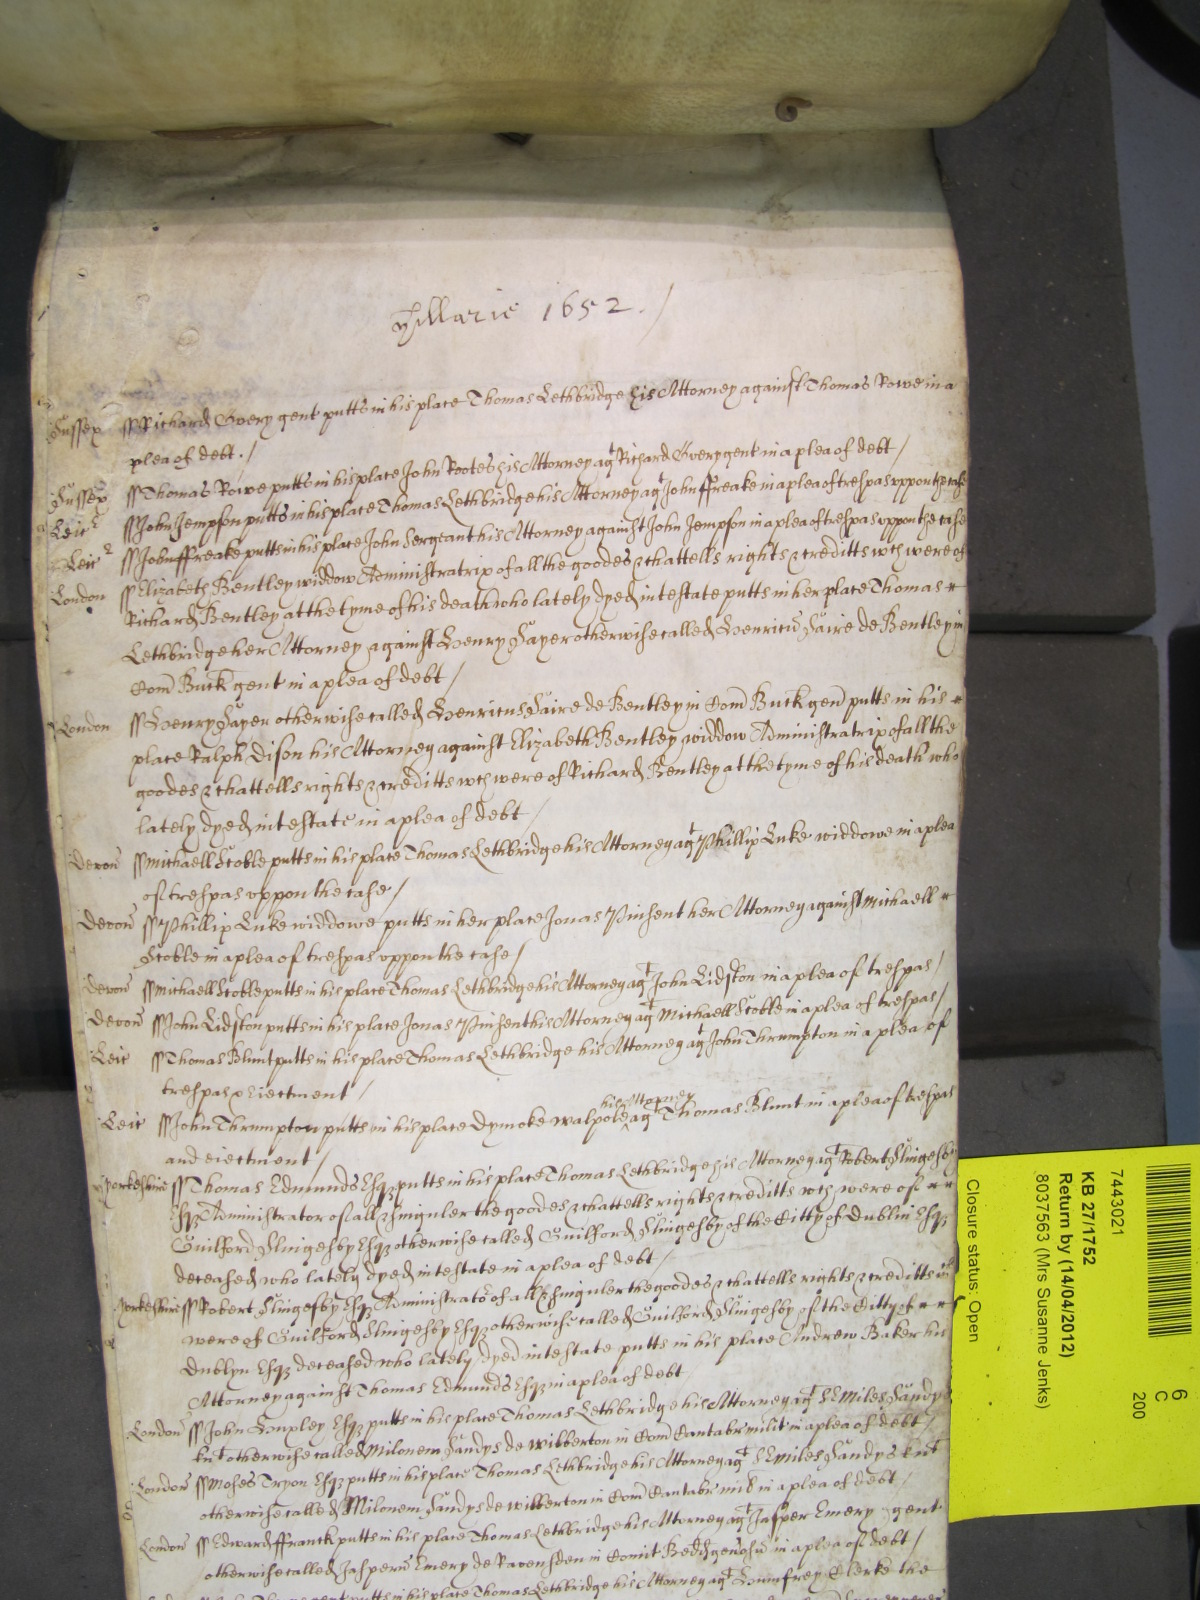 Hillarie 1652./
Sussex ss Richard Overy gent putts in his place Thomas Lethbridge his Attorney against Thomas Rowe in a
plea of debt./
Sussex ss Thomas Rowe putts in his place John Rootes his Attorney agt Richard Overy gent in a plea of debt/
Leic ss John Jempson putts in his place Thomas Lethbridge his Attorney agt John ffreake in a plea of trespas uppon the case
Leic ss John ffreake putts in his place John Sergeant his Attorney against John Jempson in a plea of trespas uppon the case
London ss Elizabeth Bentley widdow Administratrix of all the goodes & chattells rights & creditts wch were of
Richard Bentley at the tyme of his death who lately dyed intestate putts in her place Thomas
Lethbridge her Attorney against Henry Sayer otherwise called Henricus Saire de Bentley in
Com Buck gent in a plea of debt/
London ss Henry Sayer otherwise called Henricus Saire de Bentley in Com Buck gen putts in his
place Ralph Dison his Attorney against Elizabeth Bentley widdow Administratrix of all the
goodes & chattells rights & creditts wch were of Richard Bentley at the tyme of his death who
lately dyed intestate in a plea of debt/
Devon ss Michaell Stoble putts in his place Thomas Lethbridge his Attorney agt Phillip Luke widdowe in a plea
of trespas uppon the case/
Devon ss Phillip Luke widdowe putts in her place Jonas Pinsent her Attorney against Michaell
Stoble in a plea of trespas uppon the case/
Devon ss Michaell Stoble putts in his place Thomas Lethbridge his Attorney agt John Lidston in a plea of trespas/
Devon ss John Lidston putts in his place Jonas Pinsent his Attorney agt Michaell Stoble in a plea of trespas/
Leic ss Thomas Blunt putts in his place Thomas Lethbridge his Attorney agt John Thrumpton in a plea of
trespas & eiectment/
Leic ss John Thrumpton putts in his place Dymoke Walpole his Attorney agt Thomas Blunt in a plea of trespas
and eiectment/
Yorkeshire ss Thomas Edmunds Esqr putts in his place Thomas Lethbridge his Attorney agt Robert Slingesby
Esqr Administrator of all & singuler the goodes & chattells rights & creditts wch were of
Guilford Slingesby Esqr otherwise called Guilford Slingesby of the Citty of Dublin Esqr
deceased who lately dyed intestate in a plea of debt/
Yorkeshire ss Robert Slingesby Esqr Administrator of all & singuler the goodes & chattells rights & creditts wch
were of Guilford Slingesby Esqr otherwise called Guilford Slingesby of the Citty of
Dublyn Esqr deceased who lately dyed intestate putts in his place Andrew Baker his
Attorney against Thomas Edmunds Esqr in a plea of debt
London ss John Esqr putts in his place Thomas Lethbridge his Attorney agt Sr Miles Sandys
knt otherwise called Milonem Sandys de Wilberton in Com Cantabr milit in a plea of debt/
London ss Moses Tryon Esqr putts in his place Thomas Lethbridge his Attorney agt Sr Miles Sandys knt
otherwise called Milonem Sandys de Wilberton in Com Cantabr mil in a plea of debt/
London ss Edward ffranck putts in his place Thomas Lethbridge his Attorney agt Jasper Emery gent
otherwise called Jasperu Emery de Ravensden in Comit Bedd generosu in a plea of debt/
gent putts in his place Thomas Lethbridge his Attorney agt Humfrey Clerke the
7443021
KB 27/1752
Return by (14/04/2012)
8037563 (Mrs Susanne Jenks)
Closure status: Open
6
C
200